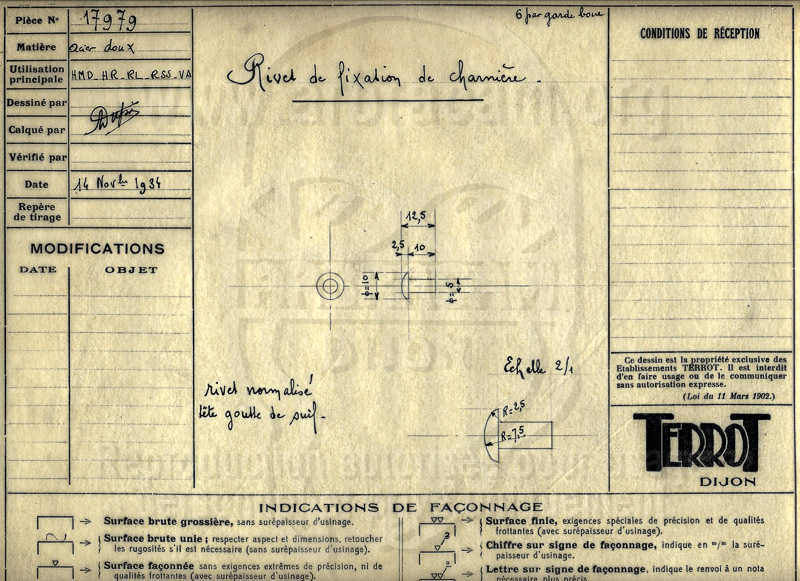 Pièce N° 17979
Matière acier doux
Utilisation principale HMD_HR_RL_RSS_VA
Dessiné par
Calqué par
Vérifié par
Date 14 Novbre 1934
Repère de tirage
MODIFICATIONS
DATE OBJET
6 par garde boue
Rivet de fixation de charnière.
12,5
2,5 10
φ=10
φ=5
rivet normalisé
tête goutte de suif.
Echelle 2/1
R=2,5
R=7,5
CONDITIONS DE RÉCEPTION
Ce dessin est la propriété exclusive des
Etablissements TERROT. Il est interdit
d'en faire usage ou de le communiquer
sans autorisation expresse.
(Loi du 11 Mars 1902.)
TERROT
DIJON
INDICATIONS DE FAÇONNAGE
Surface brute grossière, sans surépaisseur d'usinage.
Surface brute unie; respecter aspect et dimensions, retoucher
les rugosités s'il est nécessaire (sans surépaisseur d'usinage).
Surface façonnée sans exigences extrêmes de précision, ni de
qualités frottantes (avec surépaisseur d'usinage).
Surface finie, exigences spéciales de précision et de qualités
frottantes (avec surépaisseur d'usinage).
Chiffre sur signe de façonnage, indique en m/m la suré-
paisseur d'usinage.
Lettre sur signe de façonnage, indique le renvoi à un nota
nécessaire plus précis